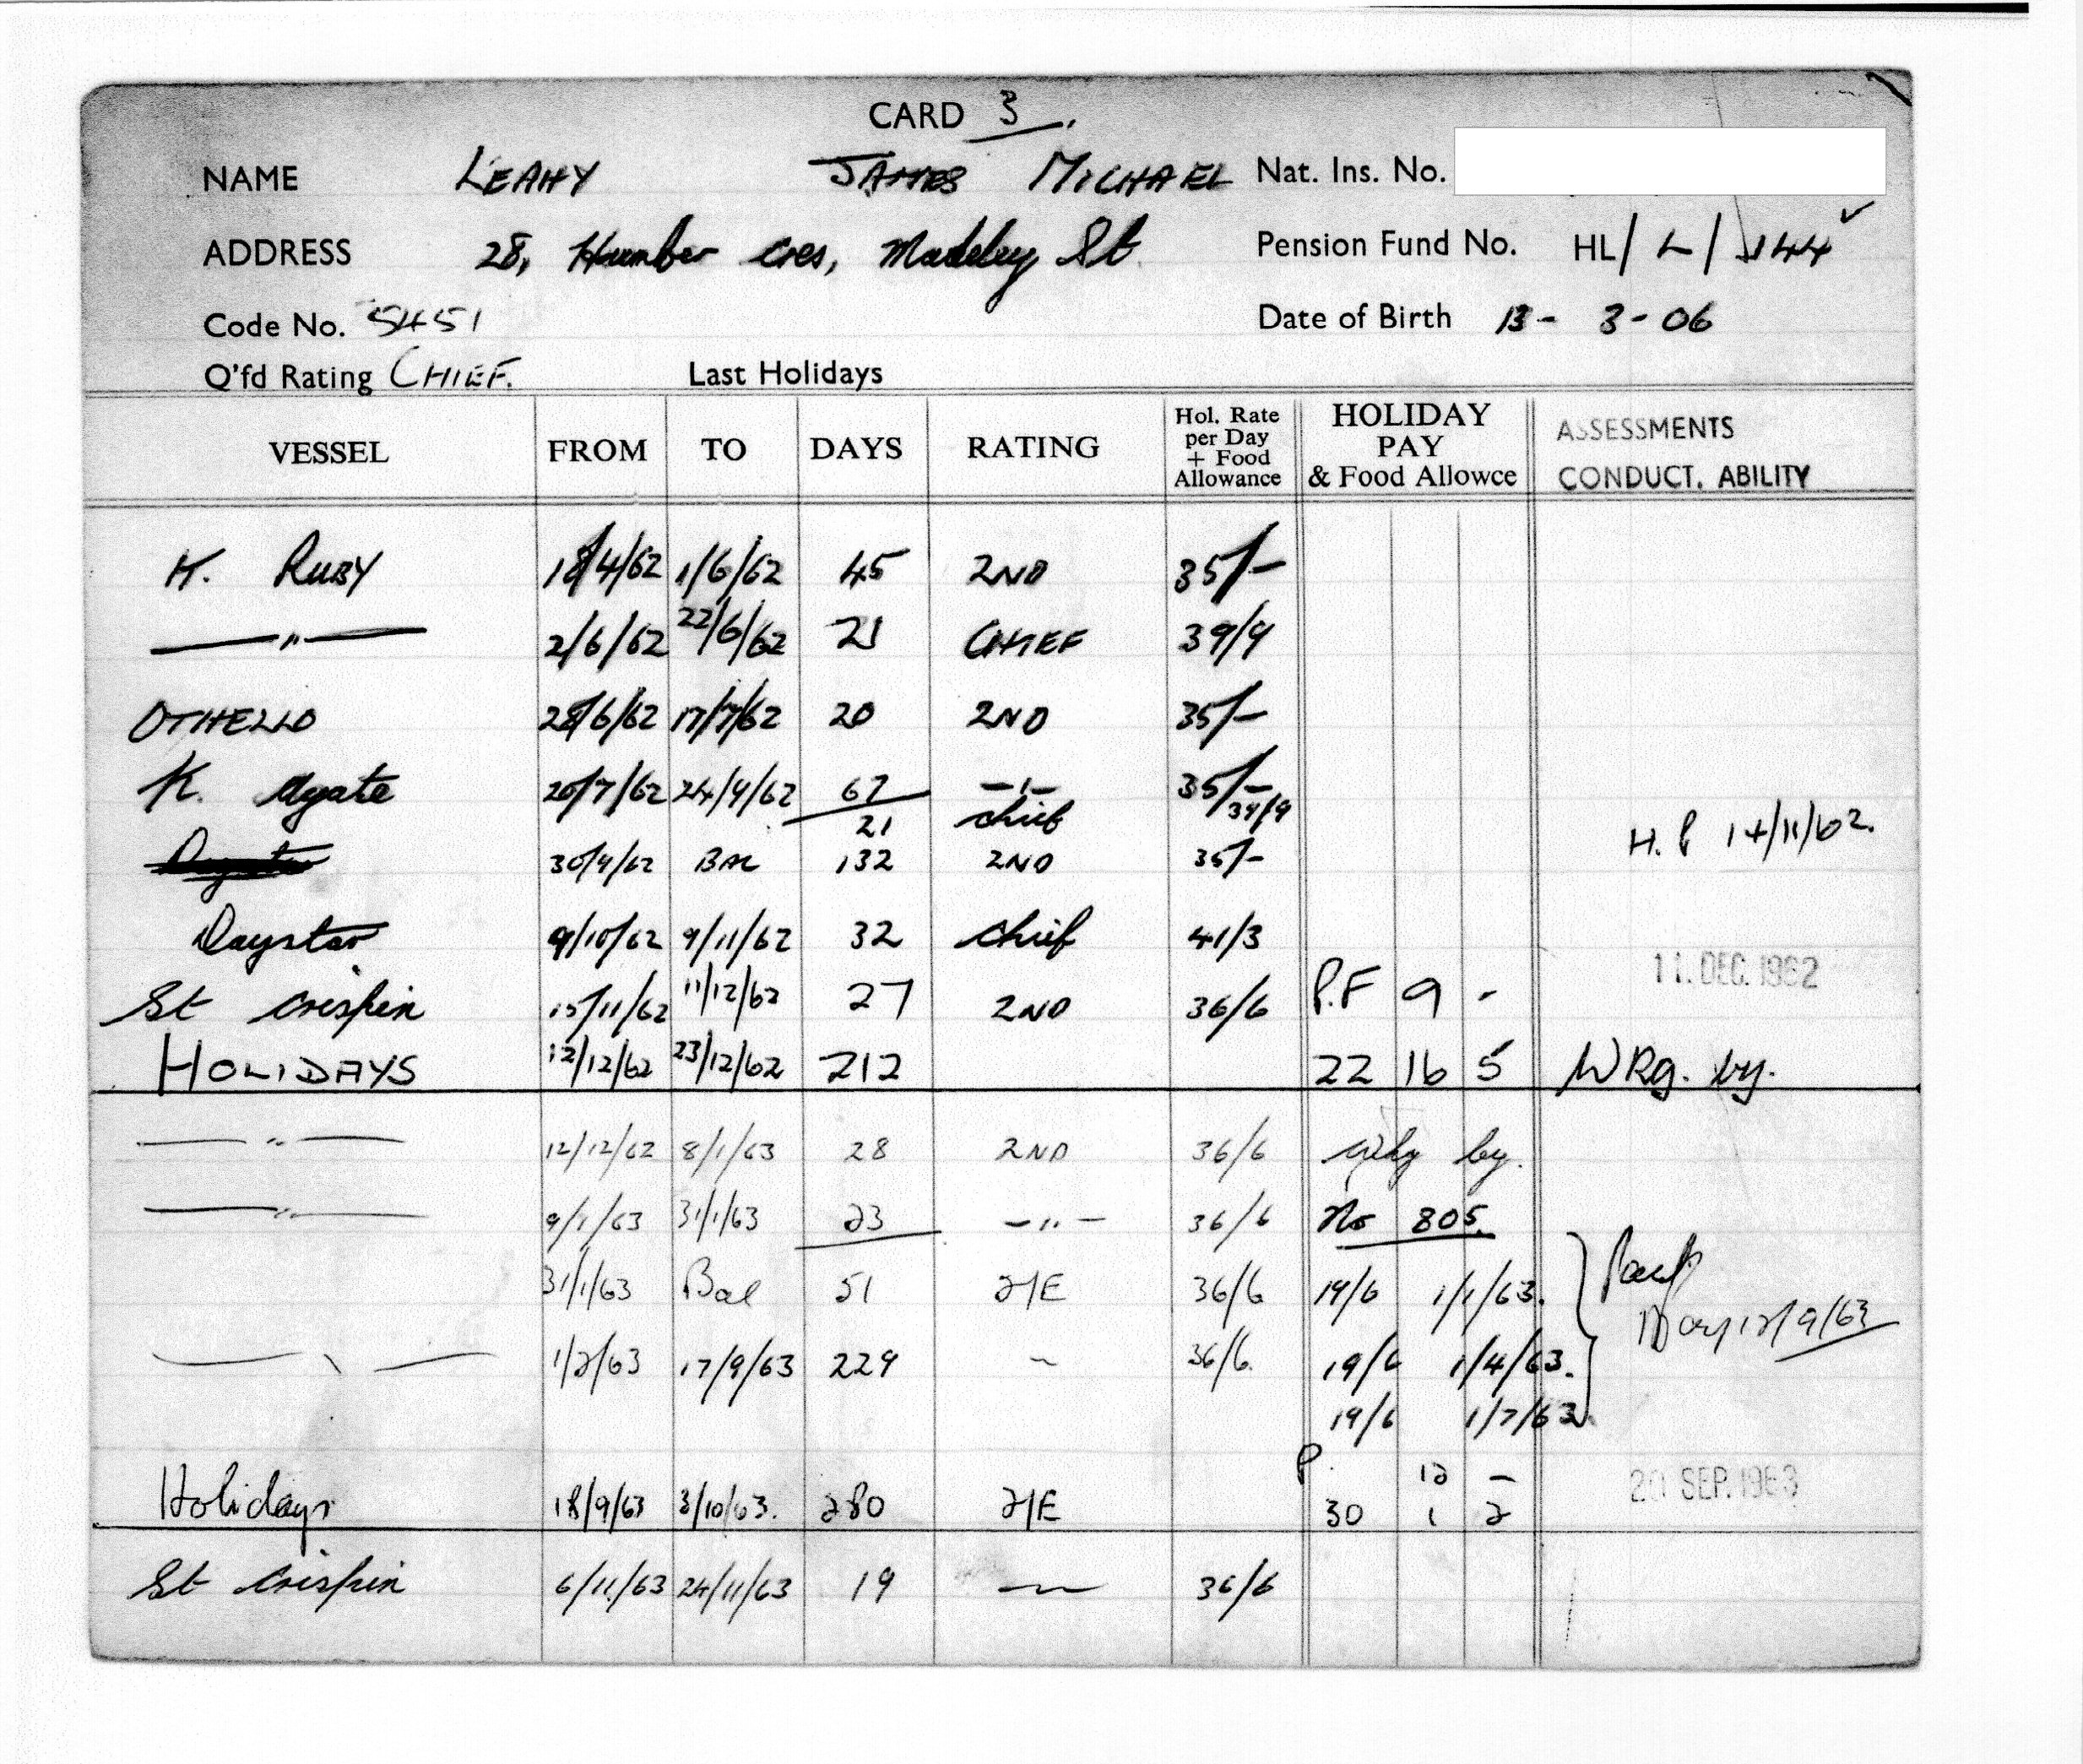 CARD 3.
NAME LEAHY JAMES MICHAEL Nat. Ins. No.
ADDRESS 28, Humber Cres, Madeley St. Pension Fund No. HL/ L/ 144
Code No. 5451 Date of Birth 13 - 3 - 06
Q'fd Rating CHIEF. Last Holidays
VESSEL FROM TO DAYS RATING Hol. Rate per Day + Food Allowance HOLIDAY PAY & Food Allowce ASSESSMENTS CONDUCT. ABILITY
K. RUBY 18/4/62 1/6/62 45 2ND 35/-
—"— 2/6/62 22/6/62 21 CHIEF 39/9
OTHELLO 28/6/62 17/7/62 20 2ND 35/-
K. Agate 20/7/62 24/9/62 67 -"- 35/-
21 chief 39/9 H.P 14/11/62.
30/9/62 BAL 132 2ND 35/-
Daystar 9/10/62 9/11/62 32 chief 41/3
11. DEC. 1962
St Crispin 15/11/62 11/12/62 27 2ND 36/6 P.F 9 -
HOLIDAYS 12/12/62 23/12/62 212 22 16 5 WRg. by.
—"— 12/12/62 8/1/63 28 2ND 36/6 by.
—"— 9/1/63 31/1/63 23 —"— 36/6 No 805.
31/1/63 Bal 51 2/E 36/6 19/6 1/1/63.
—"— 1/2/63 17/9/63 229 ~ 36/6. 19/6 1/4/63.
19/6 1/7/63
P. 12 —
20 SEP. 1963
Holidays 18/9/63 3/10/63. 280 2/E 30 1 2
St Crispin 6/11/63 24/11/63 19 — 36/6